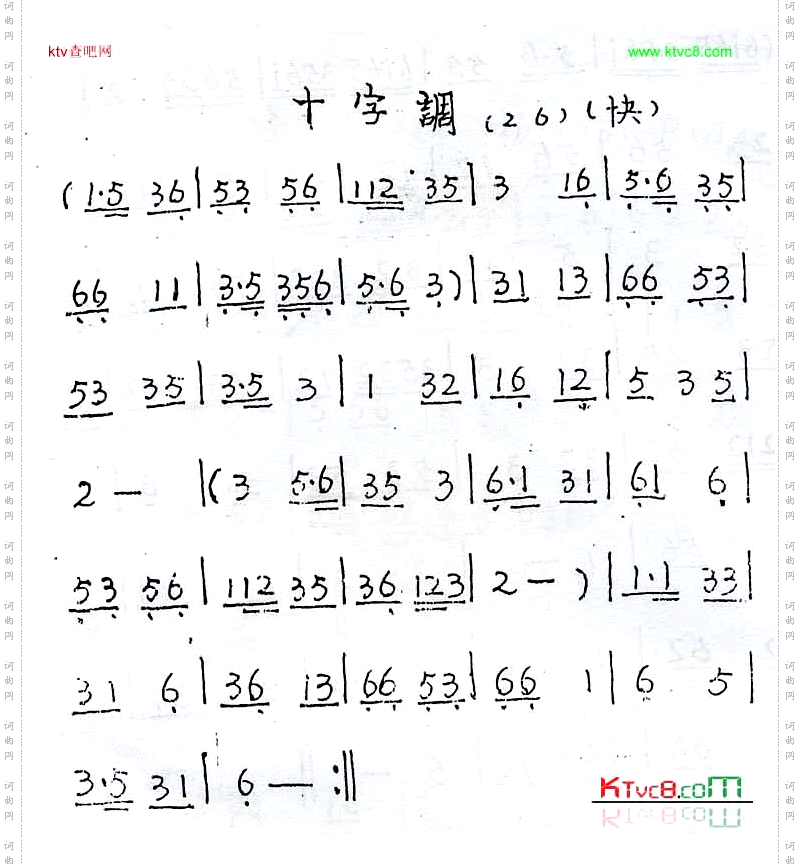 ktv查吧网 www.ktvc8.com
十字調(26)(快)
(1·5 36|53 56|112 35|3 16|5·6 35|
66 11|3·5 356|5·6 3)|31 13|66 53|
53 35|3·5 3|1 32|16 12|5 3 5|
2—|(3 5·6|35 3|6·1 31|61 6|
53 56|112 35|36 123|2—)|1·1 33|
31 6|36 13|66 53|66 1|6 5|
3·5 31|6—:||
KTVC8.COM
词曲网